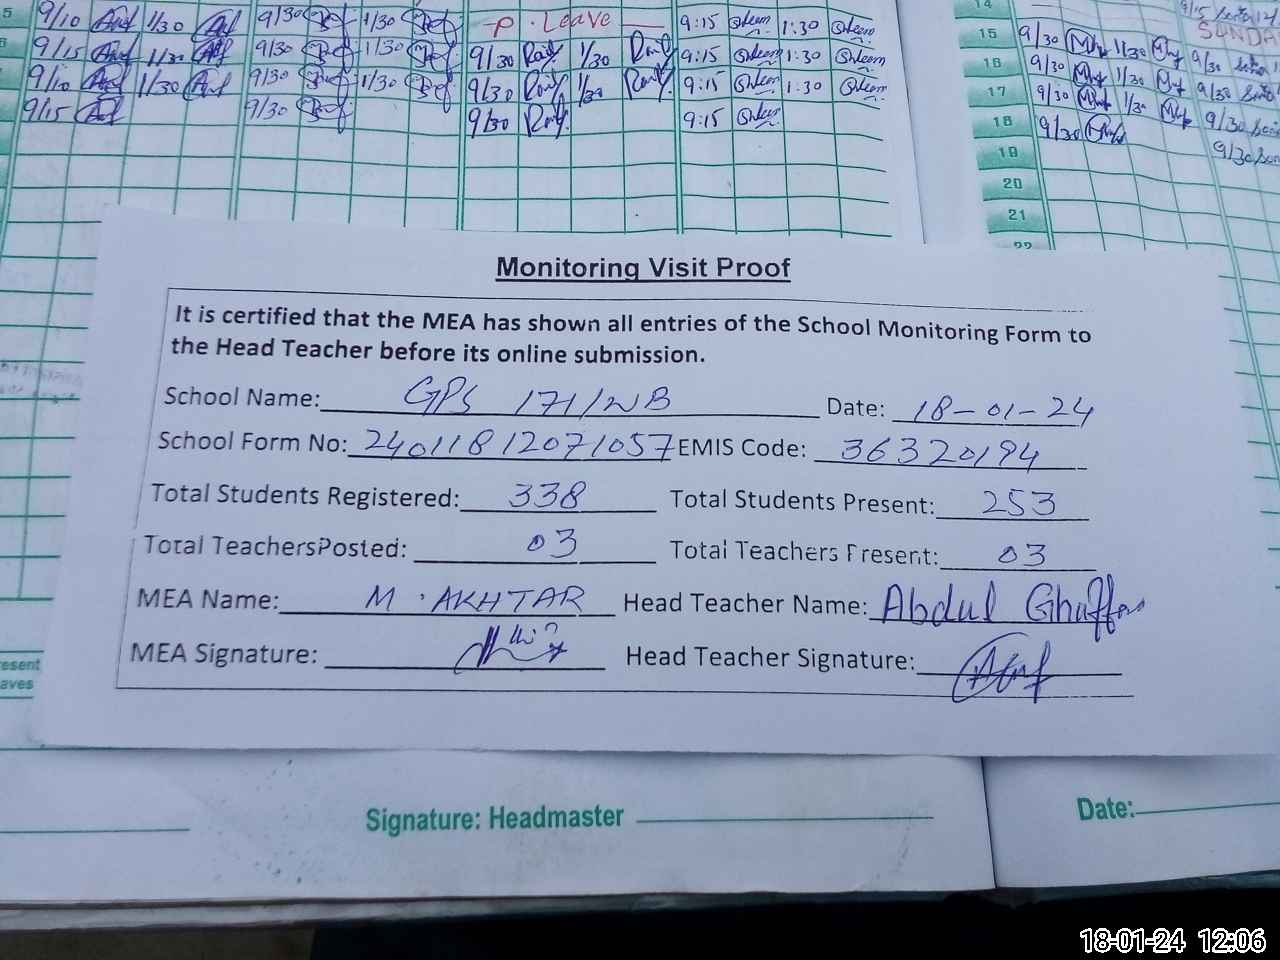 5 9/10 1/30 9/30 1/30 P. Leave 9:15 1:30
9/15 1/30 9/30 1/30 9/30 1/30 9:15 1:30
9/10 1/30 9/30 1/30 9/30 1/30 9:15 1:30
9/15 9/30 9/30 9:15
14 9/15
15 9/30 1/30 9/30 SUNDA
16 9/30 1/30 9/30
17 9/30 1/30 9/30
18 9/30 9/30
19
20
21
22
Monitoring Visit Proof
It is certified that the MEA has shown all entries of the School Monitoring Form to
the Head Teacher before its online submission.
School Name: GPS 171/WB Date: 18-01-24
School Form No: 24011812071057 EMIS Code: 36320194
Total Students Registered: 338 Total Students Present: 253
Total TeachersPosted: 03 Total Teachers Present: 03
MEA Name: M. AKHTAR Head Teacher Name: Abdul Ghaffar
MEA Signature: Head Teacher Signature:
esent
aves
Signature: Headmaster Date:
18-01-24 12:06